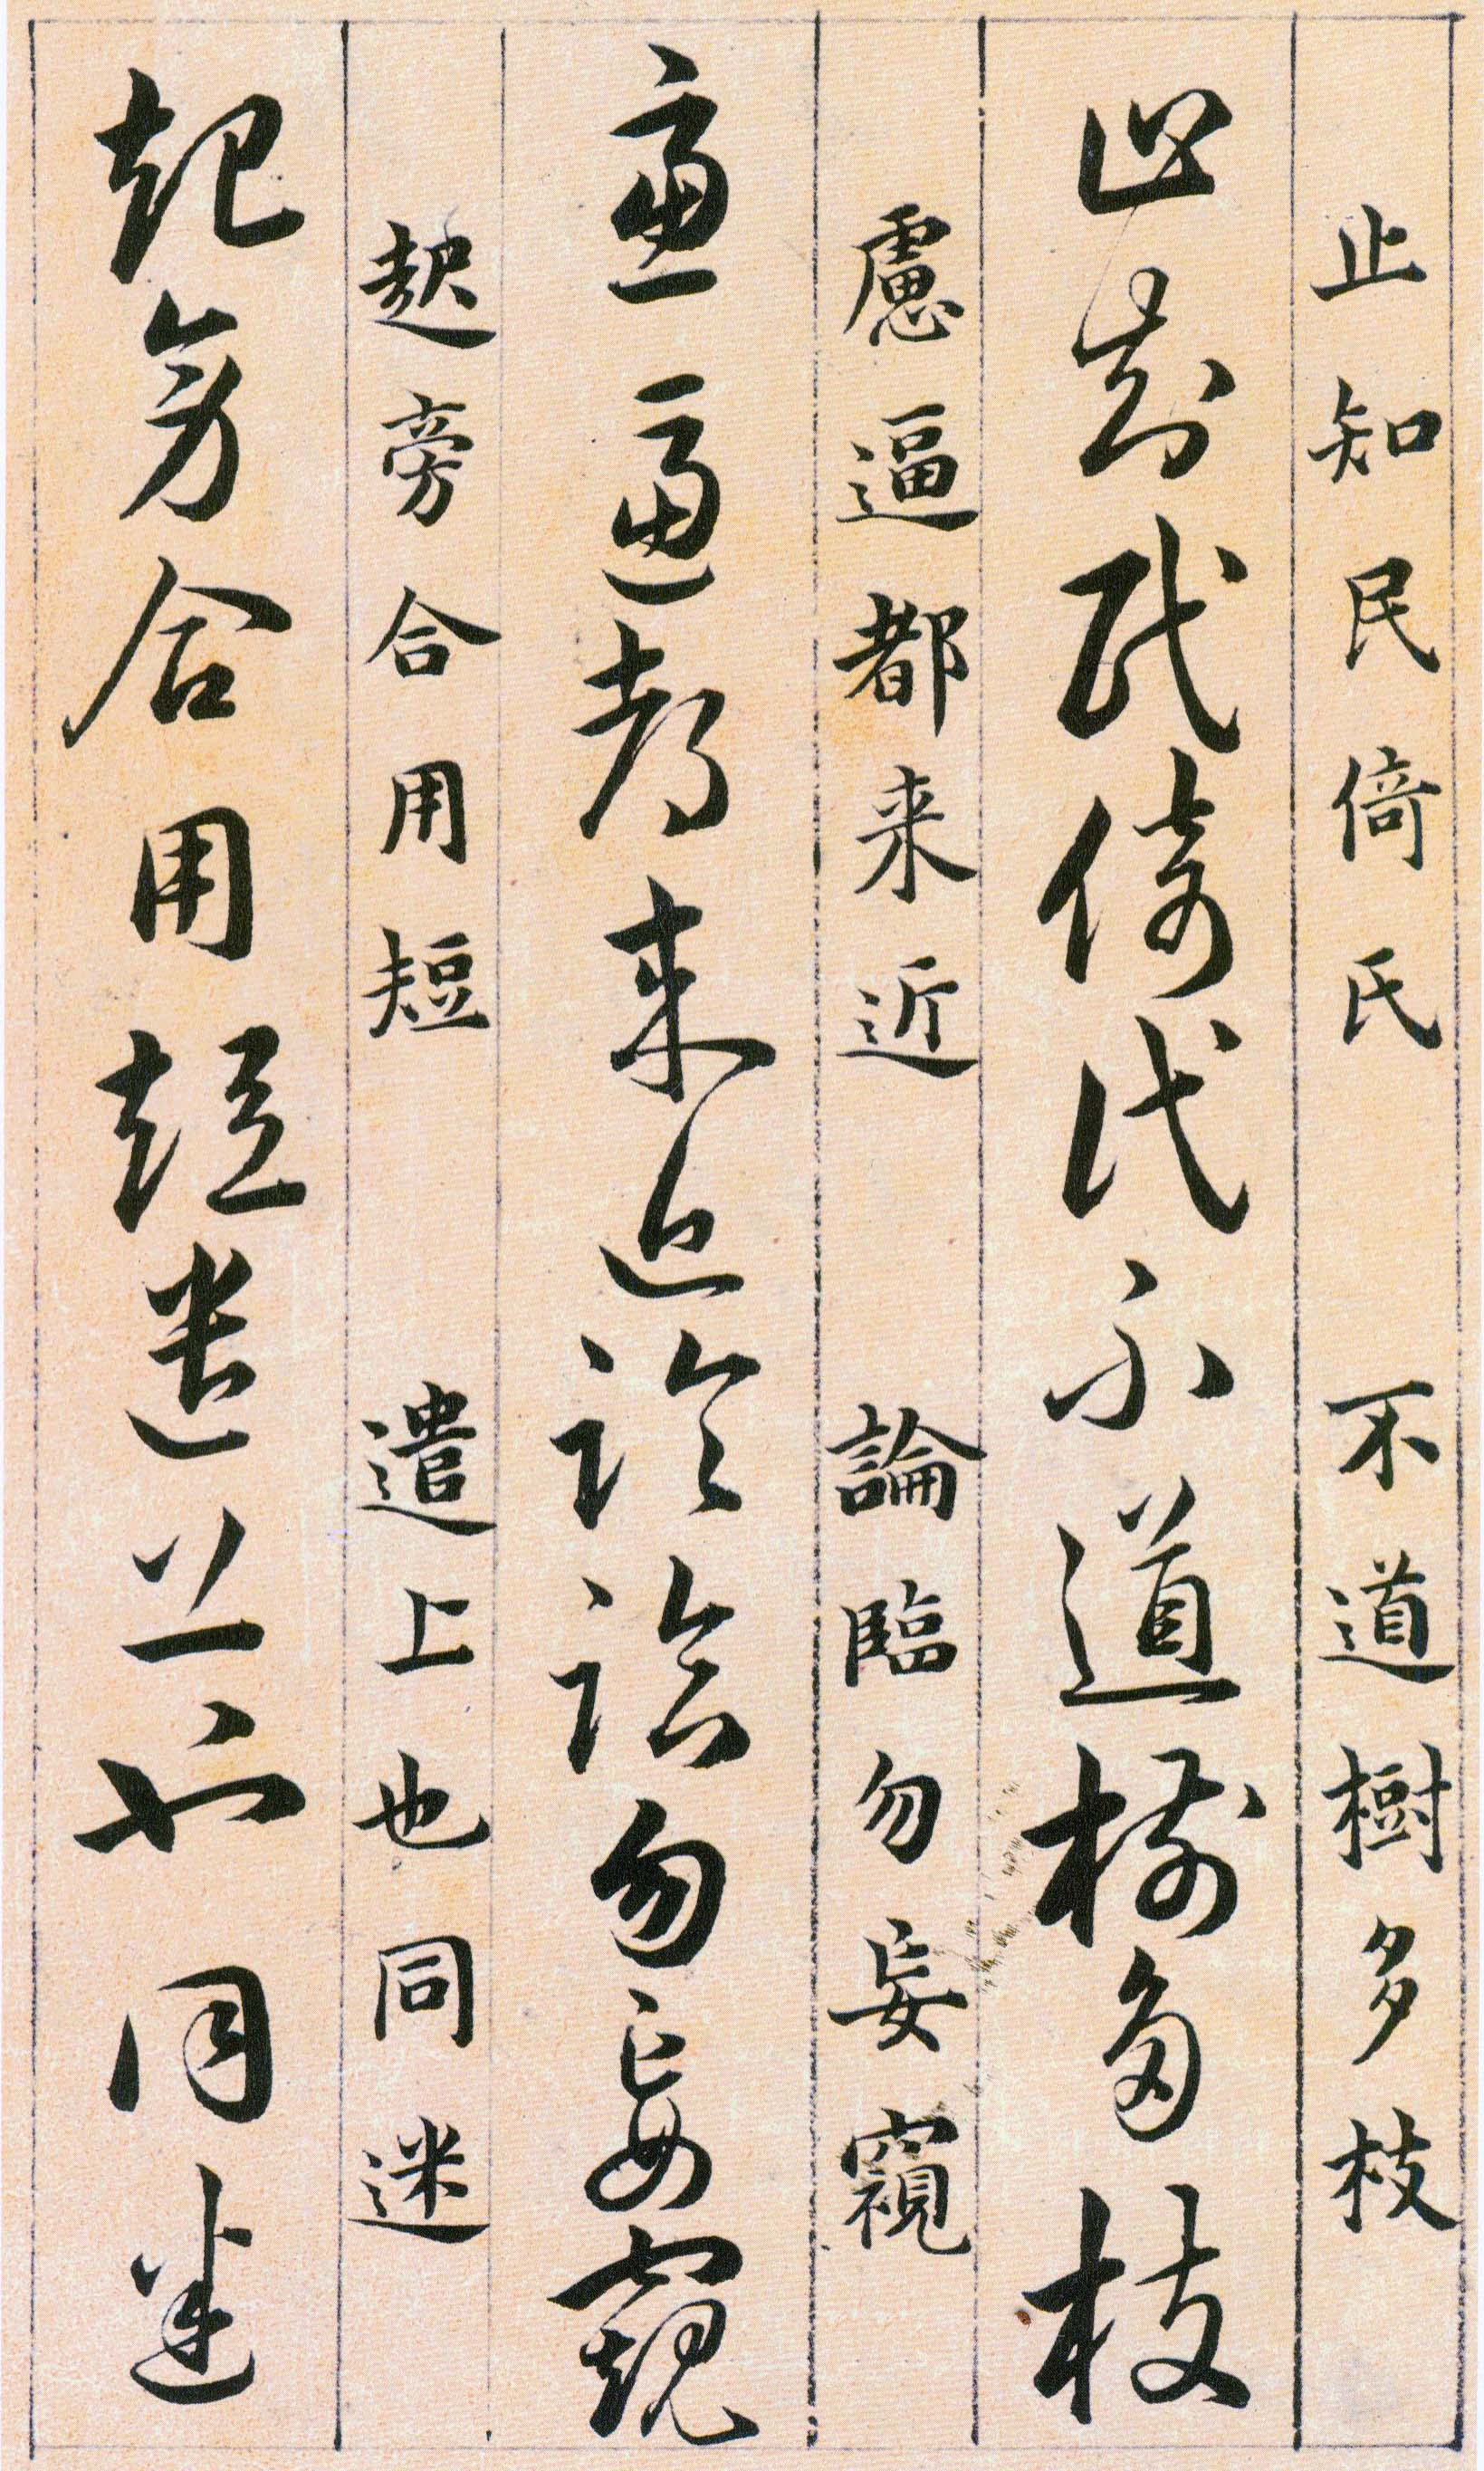 止知民倚氏　不道樹多枝
止知民倚氏不道樹多枝
慮逼都来近　論臨勿妄窺
慮逼都来近論臨勿妄窺
起旁合用短　遣上也同迷
起旁合用短遣上也同迷